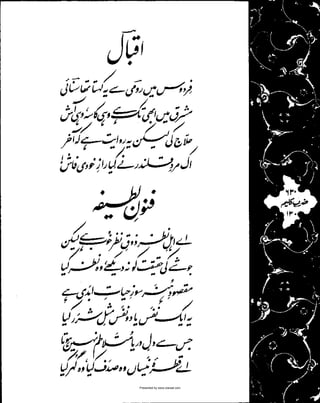 اقبال
فردوس میں رومی سے یہ کہتا تھا سنائی
مشرق میں ابھی تک ہے وہی کاسہ وہی آش
حلاج کی لیکن یہ روایت ہے کہ آخر
اک مرد قلندر نے کیا راز خودی فاش!
فنون لطیفہ
اے اہل نظر ذوق نظر خوب ہے لیکن
جو شے کی حقیقت کو نہ دیکھے وہ نظر کیا
مقصود ہنر سوز حیات ابدی ہے
یہ ایک نفس یا دو نفس مثل شرر کیا
جس سے دل دریا متلاطم نہیں ہوتا
اے قطرۂ نیساں وہ صدف کیا وہ گہر کیا
۶۳۰
ضرب کلیم
۱۳۰
Presented by www.ziaraat.com